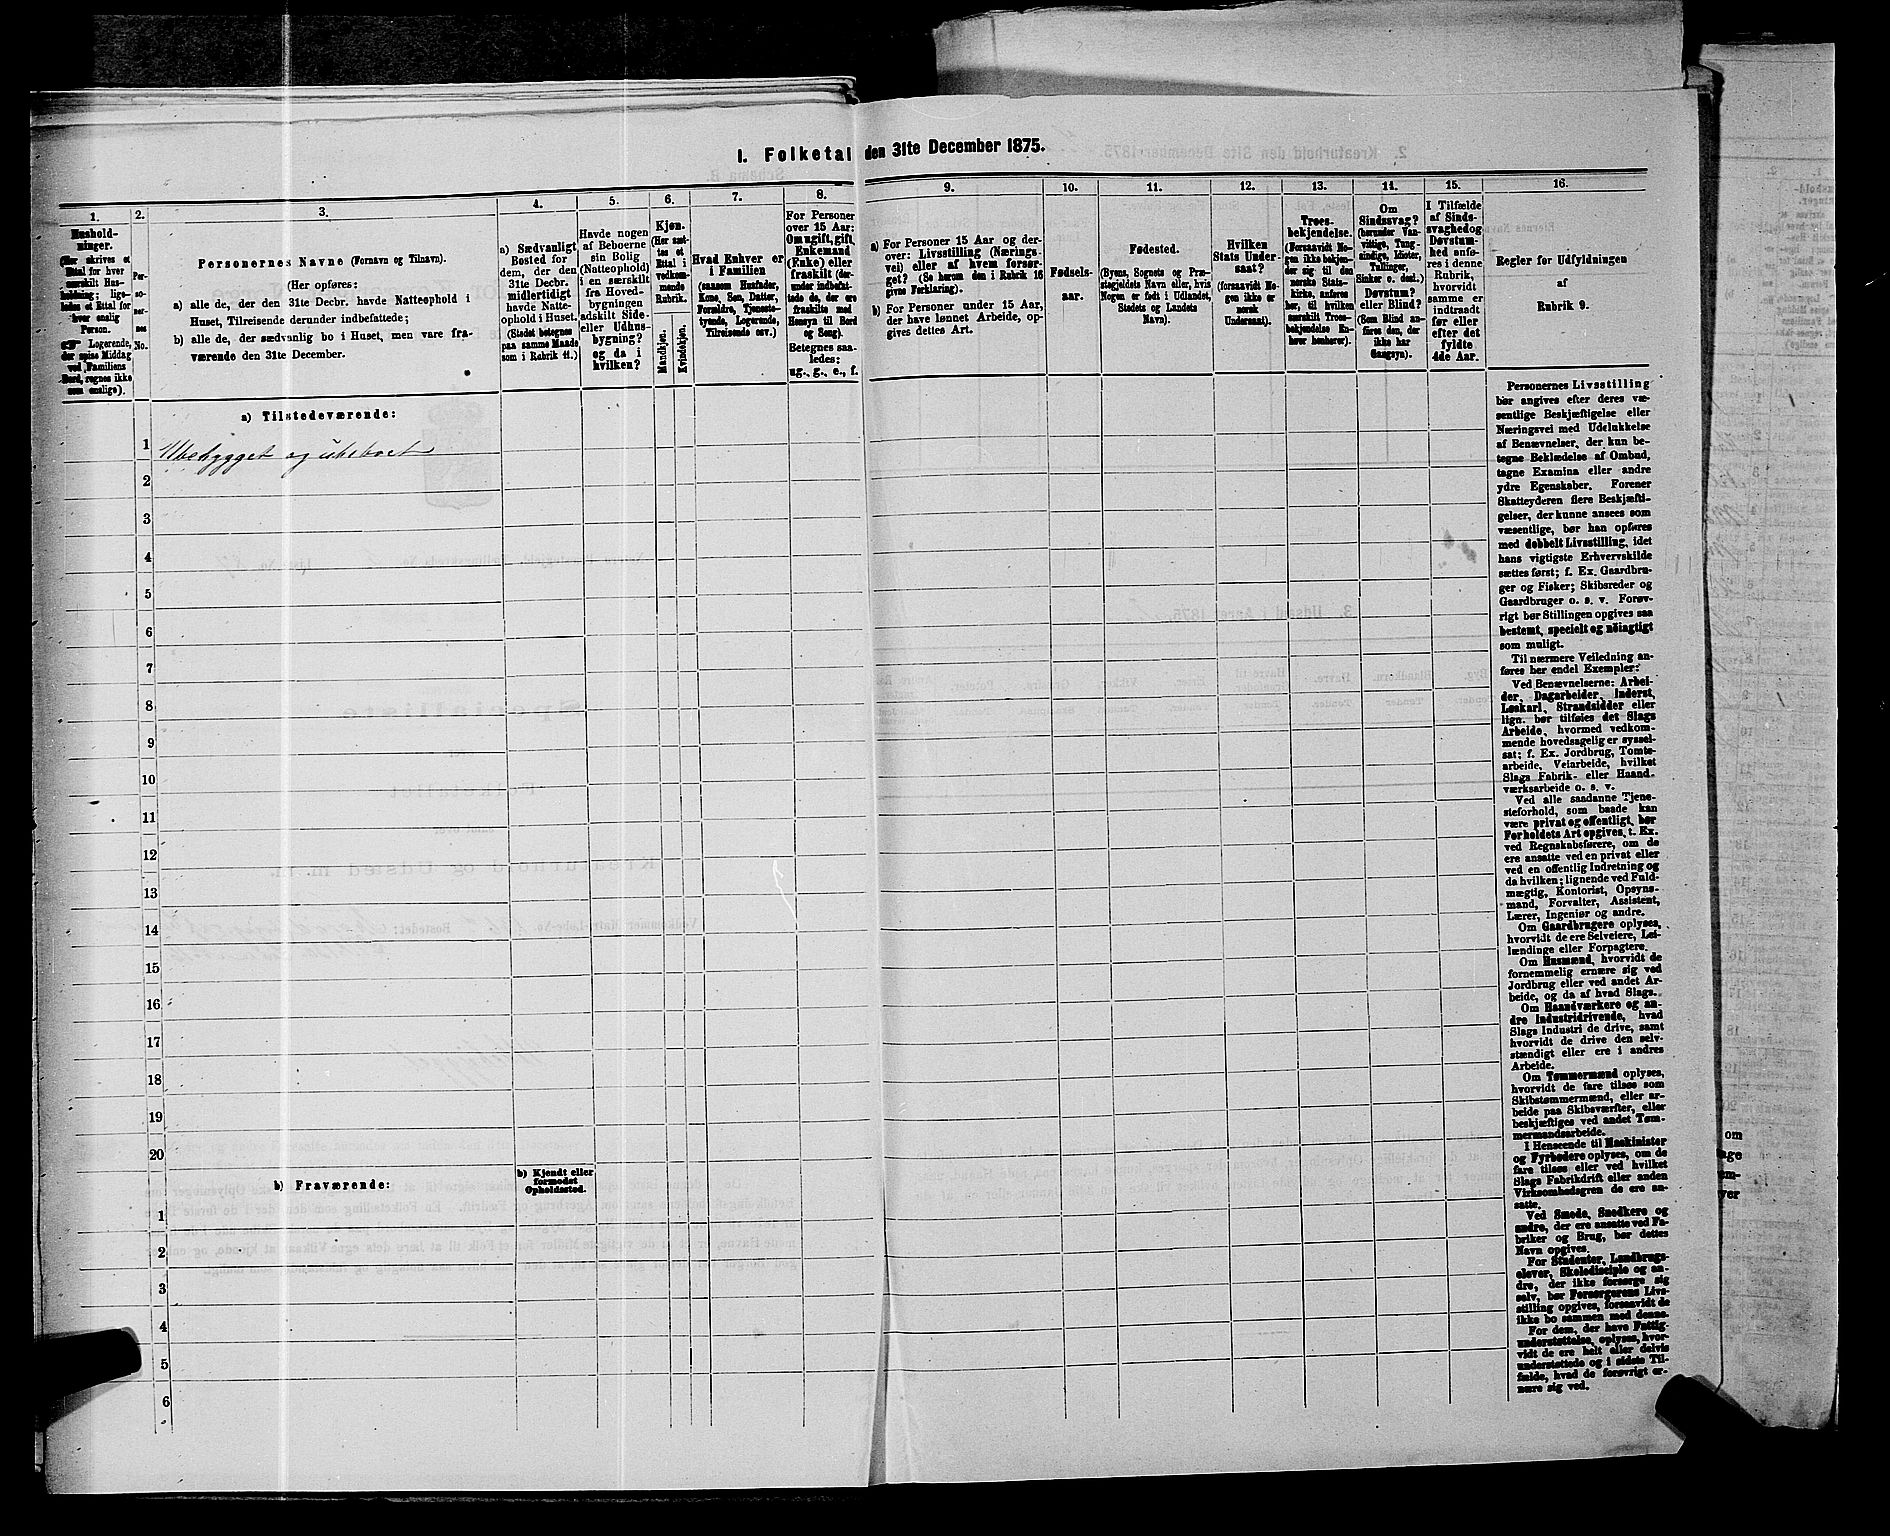 1. Folketal den 31te December 1875.
1.
2.
3.
4.
5.
6.
7.
8.
9.
10.
11.
12.
13.
14.
15.
16.
Hushold-
ninger.
(Her skrives et
Ettal for hver
særskilt Hus-
holdning; lige-
ledes et Ettal for
hver enslig
Person.
☞ Logerende,
der spise Middag
ved Familiens
Bord, regnes ikke
som enslige).
Per-
so-
ner-
nes
No.
Personernes Navne (Fornavn og Tilnavn).
(Her opføres:
a) alle de, der den 31te Decbr. havde Natteophold i
Huset, Tilreisende derunder indbefattede;
b) alle de, der sædvanlig bo i Huset, men vare fra-
værende den 31te December.
a) Sædvanligt
Bosted for
dem, der den
31te Decbr.
midlertidigt
havde Natte-
ophold i Huset.
(Stedet betegnes
paa samme Maade
som i Rubrik 11.)
Havde nogen
af Beboerne
sin Bolig
(Natteophold)
i en særskilt
fra Hoved-
bygningen
adskilt Side-
eller Udhus-
bygning?
og da i
hvilken?
Kjøn.
(Her sæt-
tes et
Ettal i
vedkom-
mende
Rubrik.
Mandkjøn.
Kvindekjøn.
Hvad Enhver er
i Familien
(saasom Husfader,
Kone, Søn, Datter,
Forældre, Tjeneste-
tyende, Logerende,
Tilreisende osv.)
For Personer
over 15 Aar:
Om ugift, gift,
Enkemand
(Enke) eller
fraskilt (der-
under indbefat-
tede de, der ere
fraskilte med
Hensyn til Bord
og Seng).
Betegnes saa-
ledes:
ug., g., e., f.
a) For Personer 15 Aar og der-
over: Livsstilling (Nærings-
vei) eller af hvem forsør-
get? (Se herom den i Rubrik 16
givne Forklaring).
b) For Personer under 15 Aar,
der have lønnet Arbeide, op-
gives dettes Art.
Fødsels-
aar.
Fødested.
(Byens, Sognets og Præ-
stegjeldets Navn eller, hvis
Nogen er født i Udlandet,
Stedets og Landets
Navn).
Hvilken
Stats Under-
saat?
(forsaavidt No-
gen ikke er
norsk
Undersaat).
Troes-
bekjendelse.
(Forsaavidt No-
gen ikke bekjen-
der sig til den
norske Stats-
kirke, anføres
her, til hvilken
særskilt Troes-
bekjendelse En-
hver henhører).
Om
Sindssvag?
(herunder Van-
vittige, Tung-
sindige, Idioter,
Tullinger,
Sinker o. desl.)
Døvstum?
eller Blind?
(Som Blind an-
føres den, der
ikke har
Gangsyn).
I Tilfælde
af Sinds-
svaghed og
Døvstum-
hed anfø-
res i denne
Rubrik,
hvorvidt
samme er
indtraadt
før eller
efter det
fyldte
4de Aar.
Regler for Udfyldningen
af
Rubrik 9.
a) Tilstedeværende:
1
Ubebygget og ubeboet
2
3
4
5
6
7
8
9
10
11
12
13
14
15
16
17
18
19
20
b) Fraværende:
b) Kjendt eller
formodet
Opholdssted.
1
2
3
4
5
6
Personernes Livsstilling
bør angives efter deres væ-
sentlige Beskjæftigelse eller
Næringsvei med Udelukkelse
af Benævnelser, der kun be-
tegne Beklædelse af Ombud,
tagne Examina eller andre
ydre Egenskaber. Forener
Skatteyderen flere Beskjæfti-
gelser, der kunne ansees som
væsentlige, bør han opføres
med dobbelt Livsstilling, idet
hans vigtigste Erhvervskilde
sættes først; f. Ex. Gaardbru-
ger og Fisker; Skibsreder og
Gaardbruger o. s. v. Forøv-
rigt bør Stillingen opgives saa
bestemt, specielt og nöiagtigt
som muligt.
Til nærmere Veiledning an-
føres her endel Exempler:
Ved Benævnelserne: Arbei-
der, Dagarbeider, Inderst,
Løskarl, Strandsidder eller
lign. bør tilføies det Slags
Arbeide, hvormed vedkom-
mende hovedsagelig er syssel-
sat; f. Ex. Jordbrug, Tomte-
arbeide, Veiarbeide, hvilket
Slags Fabrik- eller Haand-
værksarbeide o. s. v.
Ved alle saadanne Tjene-
steforhold, som baade kan
være privat og offentligt, bør
Forholdets Art opgives, t. Ex.
ved Regnskabsførere, om de
ere ansatte ved en privat eller
ved en offentlig Indretning og
da hvilken; lignende ved Fuld-
mægtig, Kontorist, Opsyns-
mand, Forvalter, Assistent,
Lærer, Ingeniør og andre.
Om Gaardbrugere oplyses,
hvorvidt de ere Selveiere, Lei-
lændinge eller Forpagtere.
Om Husmænd, hvorvidt de
fornemmelig ernære sig ved
Jordbrug eller ved andet Ar-
beide, og da af hvad Slags.
Om Haandværkere og an-
dre Industridrivende, hvad
Slags Industri de drive, samt
hvorvidt de drive den selv-
stændigt eller ere i andres
Arbeide.
Om Tømmermænd oplyses,
hvorvidt de fare tilsøs som
Skibstømmermænd, eller ar-
beide paa Skibsværfter, eller
beskjæftiges ved andet Tøm-
mermandsarbeide.
I Henseende til Maskinister
og Fyrbødere oplyses, om de
fare tilsøs eller ved hvilket
Slags Fabrikdrift eller anden
Virksomhedsgren de ere an-
satte.
Ved Smede, Snedkere og
andre, der ere ansatte ved Fa-
briker og Brug, bør dettes
Navn opgives.
For Studenter, Landbrugs-
elever, Skoledisciple og an-
dre, der ikke forsørge sig
selv, bør Forsørgerens Livs-
stilling opgives, forsaavidt de
ikke bo sammen med denne.
For dem, der have Fattig-
understøttelse, oplyses, hvor-
vidt de ere helt eller delvis
understøttede og i sidste Til-
fælde, hvad de forøvrigt er-
nære sig ved.